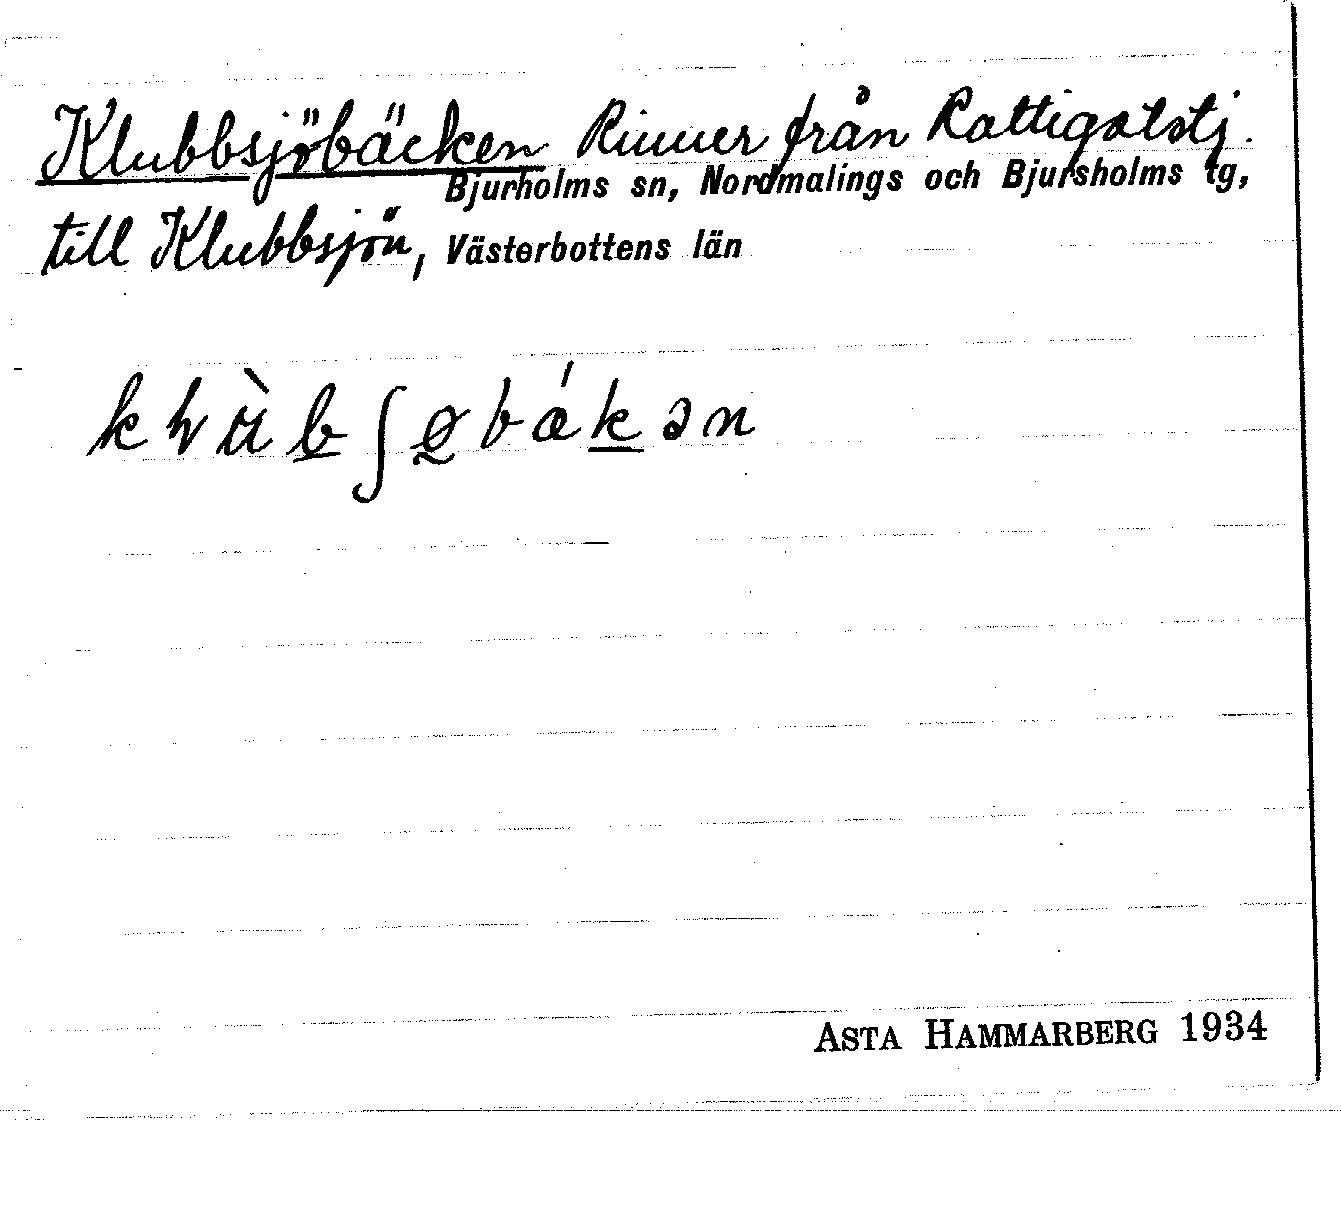 Klubbsjöbäcken Rinner från Rattigatstj.
Bjurholms sn, Nordmalings och Bjursholms tg,
till Klubbsjön, Västerbottens län
ASTA HAMMARBERG 1934